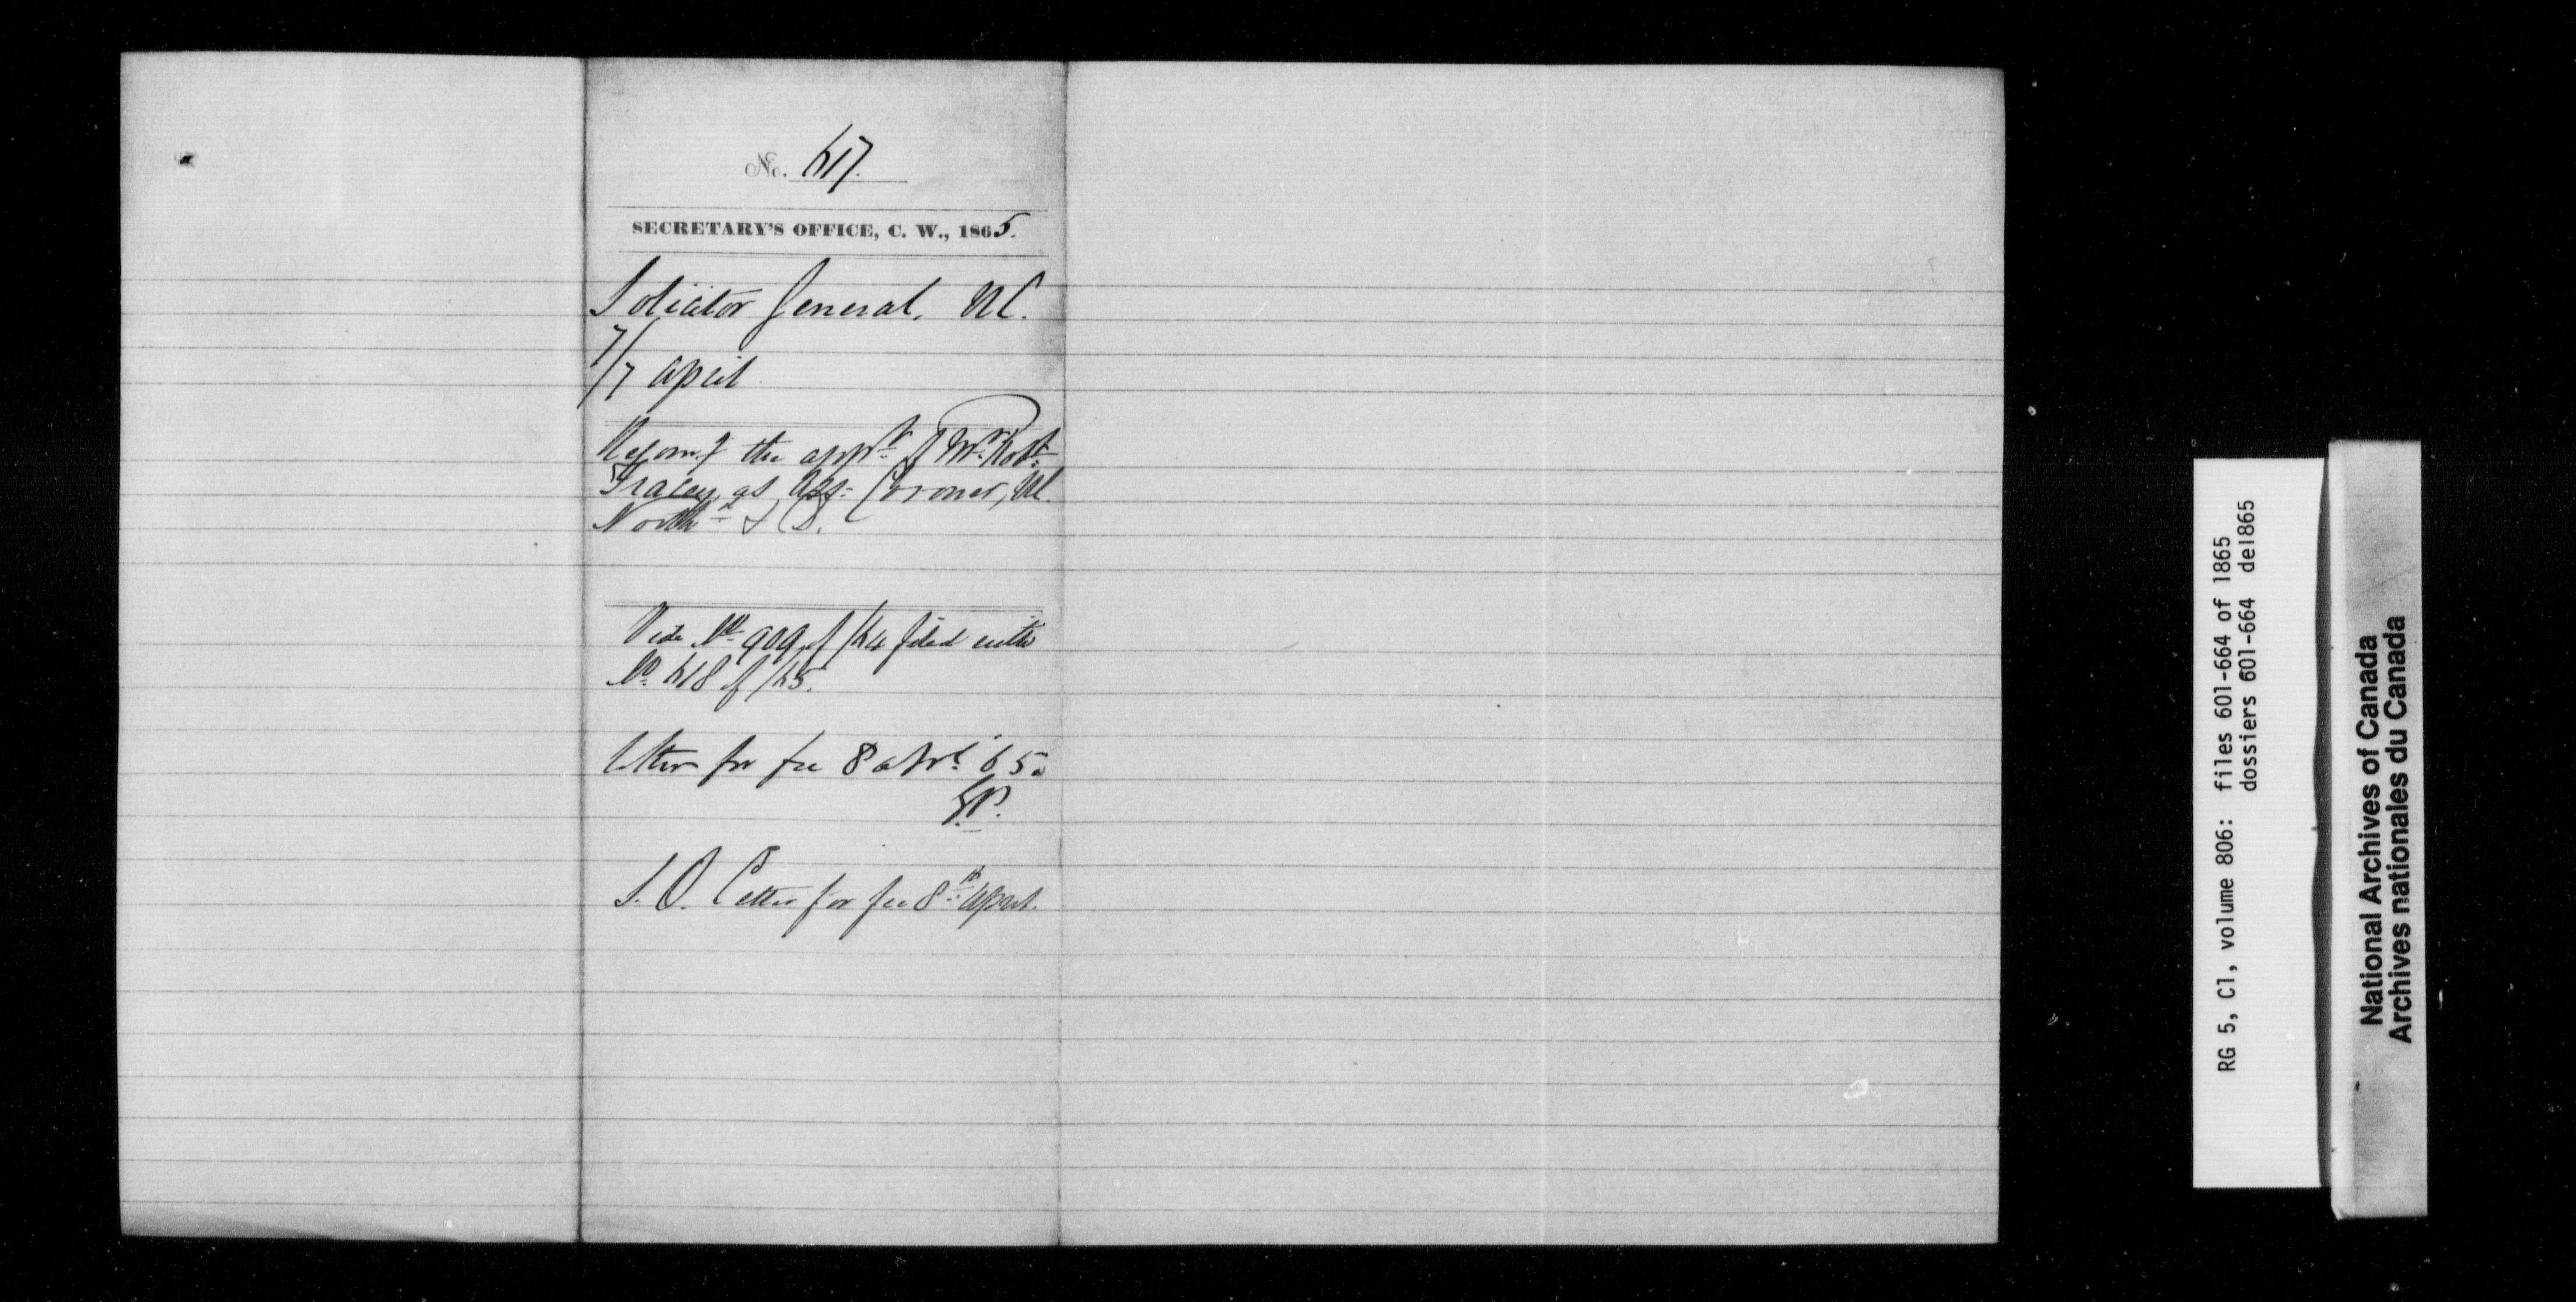 No. 617.
SECRETARY'S OFFICE, C. W., 1865.
Solicitor General. UC.
7/7 April
the appt. of Mr. Robt.
Tracey, as Ass. Coroner, UC.
Northd. & D.
Vide No. 909 of /64 filed with
No. 618 of /65.
Letter for fee 8 Apl. 65.
S. O. Letter for fee 8th April.
RG 5, C1, volume 806: files 601-664 of 1865
dossiers 601-664 de1865
National Archives of Canada
Archives nationales du Canada